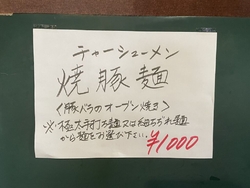 チャーシューメン
焼豚麺
〈豚バラのオーブン焼き〉
※極太手打ち麺又は細ちぢれ麺
から麺をお選び下さい。
¥1000